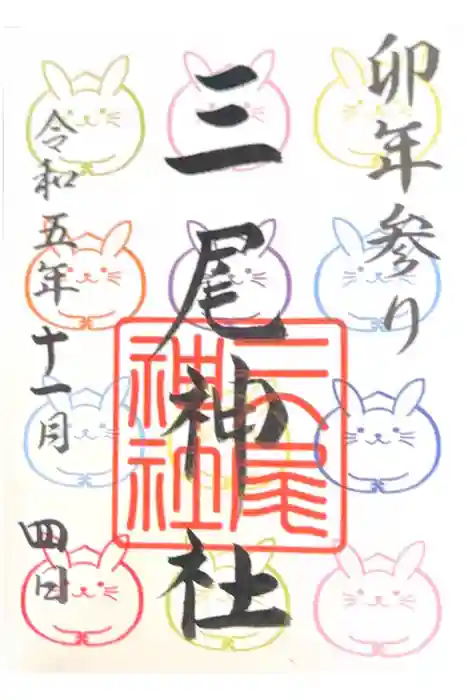 卯年参り
三尾神社
三尾神社
令和五年十一月
四日